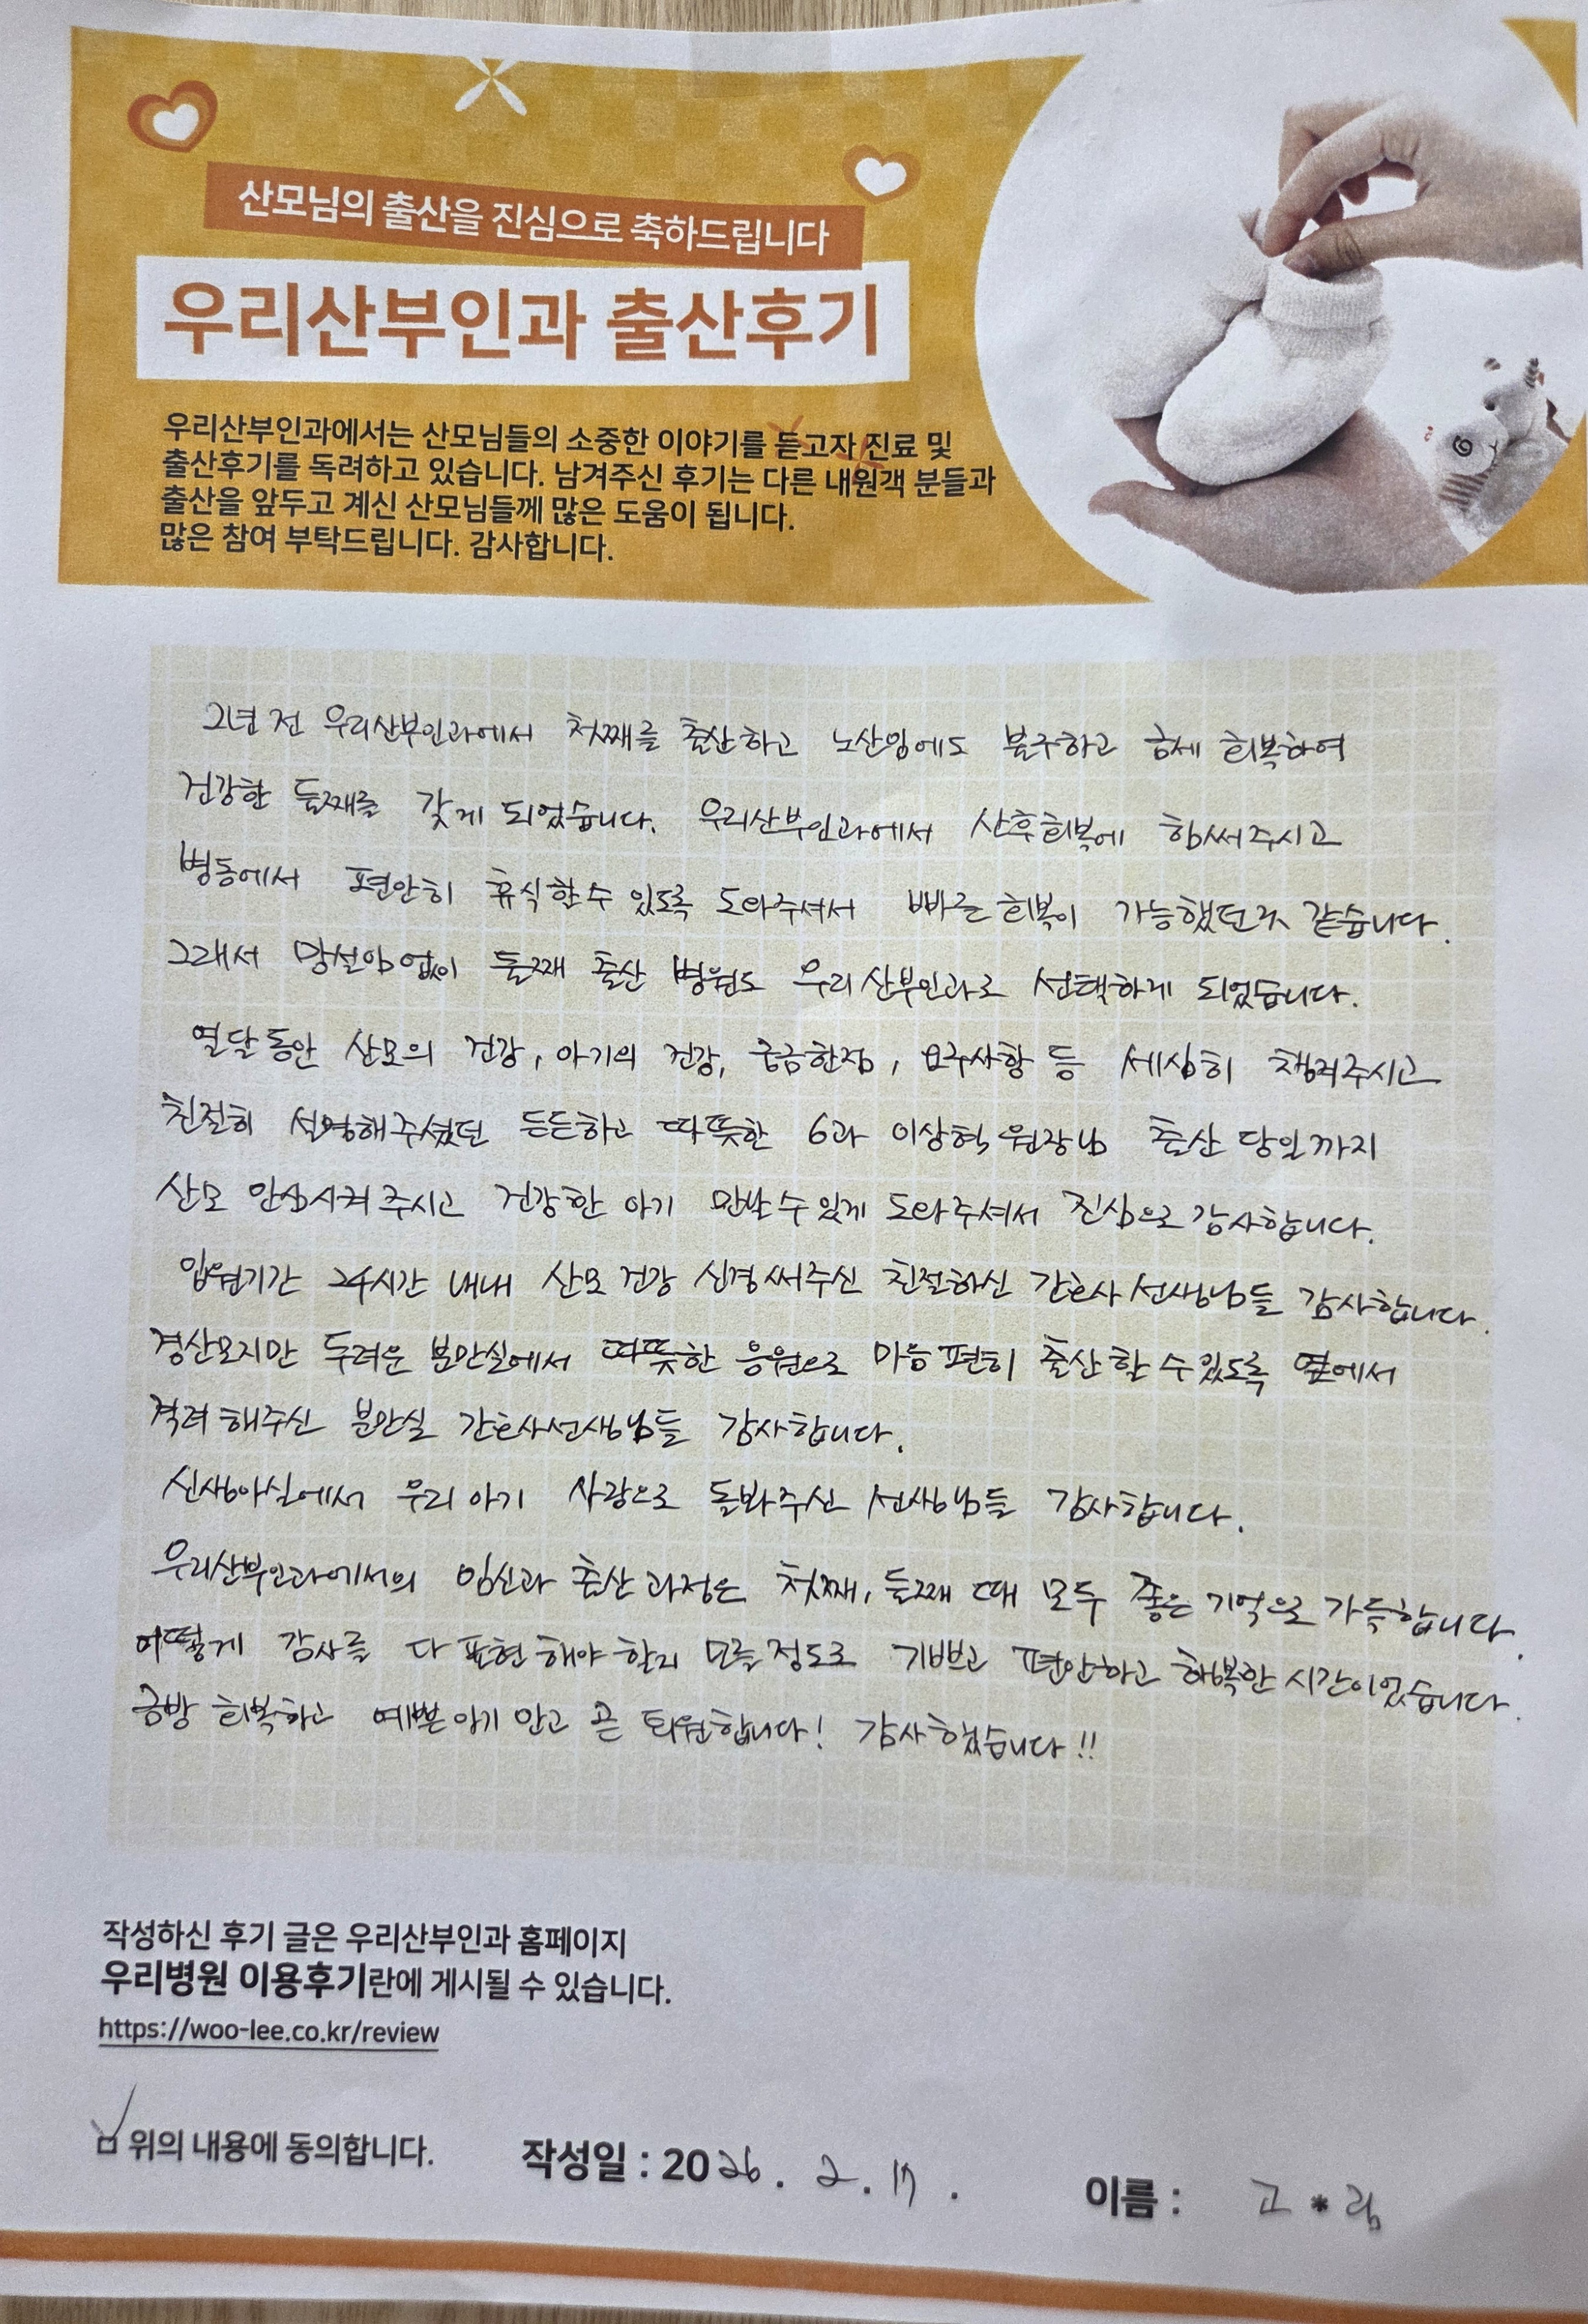 산모님의 출산을 진심으로 축하드립니다
우리산부인과 출산후기
우리산부인과에서는 산모님들의 소중한 이야기를 듣고자 진료 및
출산후기를 독려하고 있습니다. 남겨주신 후기는 다른 내원객 분들과
출산을 앞두고 계신 산모님들께 많은 도움이 됩니다.
많은 참여 부탁드립니다. 감사합니다.
2년 전 우리산부인과에서 첫째를 출산하고 노산임에도 불구하고 금세 회복하여
건강한 둘째를 갖게 되었습니다. 우리산부인과에서 산후회복에 힘써주시고
병동에서 편안히 휴식할 수 있도록 도와주셔서 빠른 회복이 가능했던것 같습니다.
그래서 망설임 없이 둘째 출산 병원도 우리산부인과로 선택하게 되었습니다.
열달동안 산모의 건강, 아기의 건강, 궁금한점, 요구사항 등 세심히 챙겨주시고
친절히 설명해주셨던 든든하고 따뜻한 6과 이상혁 원장님 출산 당일까지
산모 안심시켜 주시고 건강한 아기 만날 수 있게 도와주셔서 진심으로 감사합니다.
입원기간 24시간 내내 산모 건강 신경써주신 친절하신 간호사 선생님들 감사합니다.
경산모지만 두려운 분만실에서 따뜻한 응원으로 마음 편히 출산할 수 있도록 옆에서
격려해주신 분만실 간호사선생님들 감사합니다.
신생아실에서 우리 아기 사랑으로 돌봐주신 선생님들 감사합니다.
우리산부인과에서의 임신과 출산 과정은 첫째, 둘째 때 모두 좋은 기억으로 가득합니다.
어떻게 감사를 다 표현해야 할지 모를 정도로 기쁘고 편안하고 행복한 시간이었습니다.
금방 회복하고 예쁜 아기 안고 곧 퇴원합니다! 감사했습니다!!
작성하신 후기 글은 우리산부인과 홈페이지
우리병원 이용후기란에 게시될 수 있습니다.
https://woo-lee.co.kr/review
위의 내용에 동의합니다. 작성일 : 2026. 2. 17. 이름 : 고*림